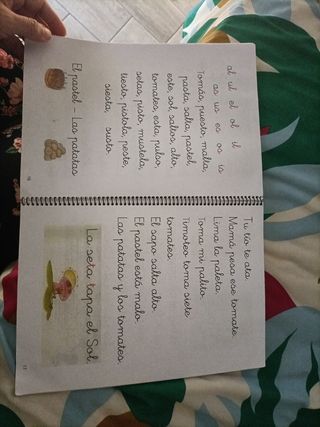 al ul el ol il
as us es os is
Tomás, puesto, malta,
pasta, salta, pastel,
este, sol, saltos, alto,
tomates, esta, pulso,
setas, pisto, mustela,
tiesto, pistola, peste,
siesta, susto
El pastel - Las patatas
16
Tu tío te ata
Mamá pesa ese tomate
Lima la paleta.
Toma mi palito
Timoteo toma siete
tomates
El sapo salta alto
El pastel está malo
Las patatas y los tomates
La seta tapa el Sol
17